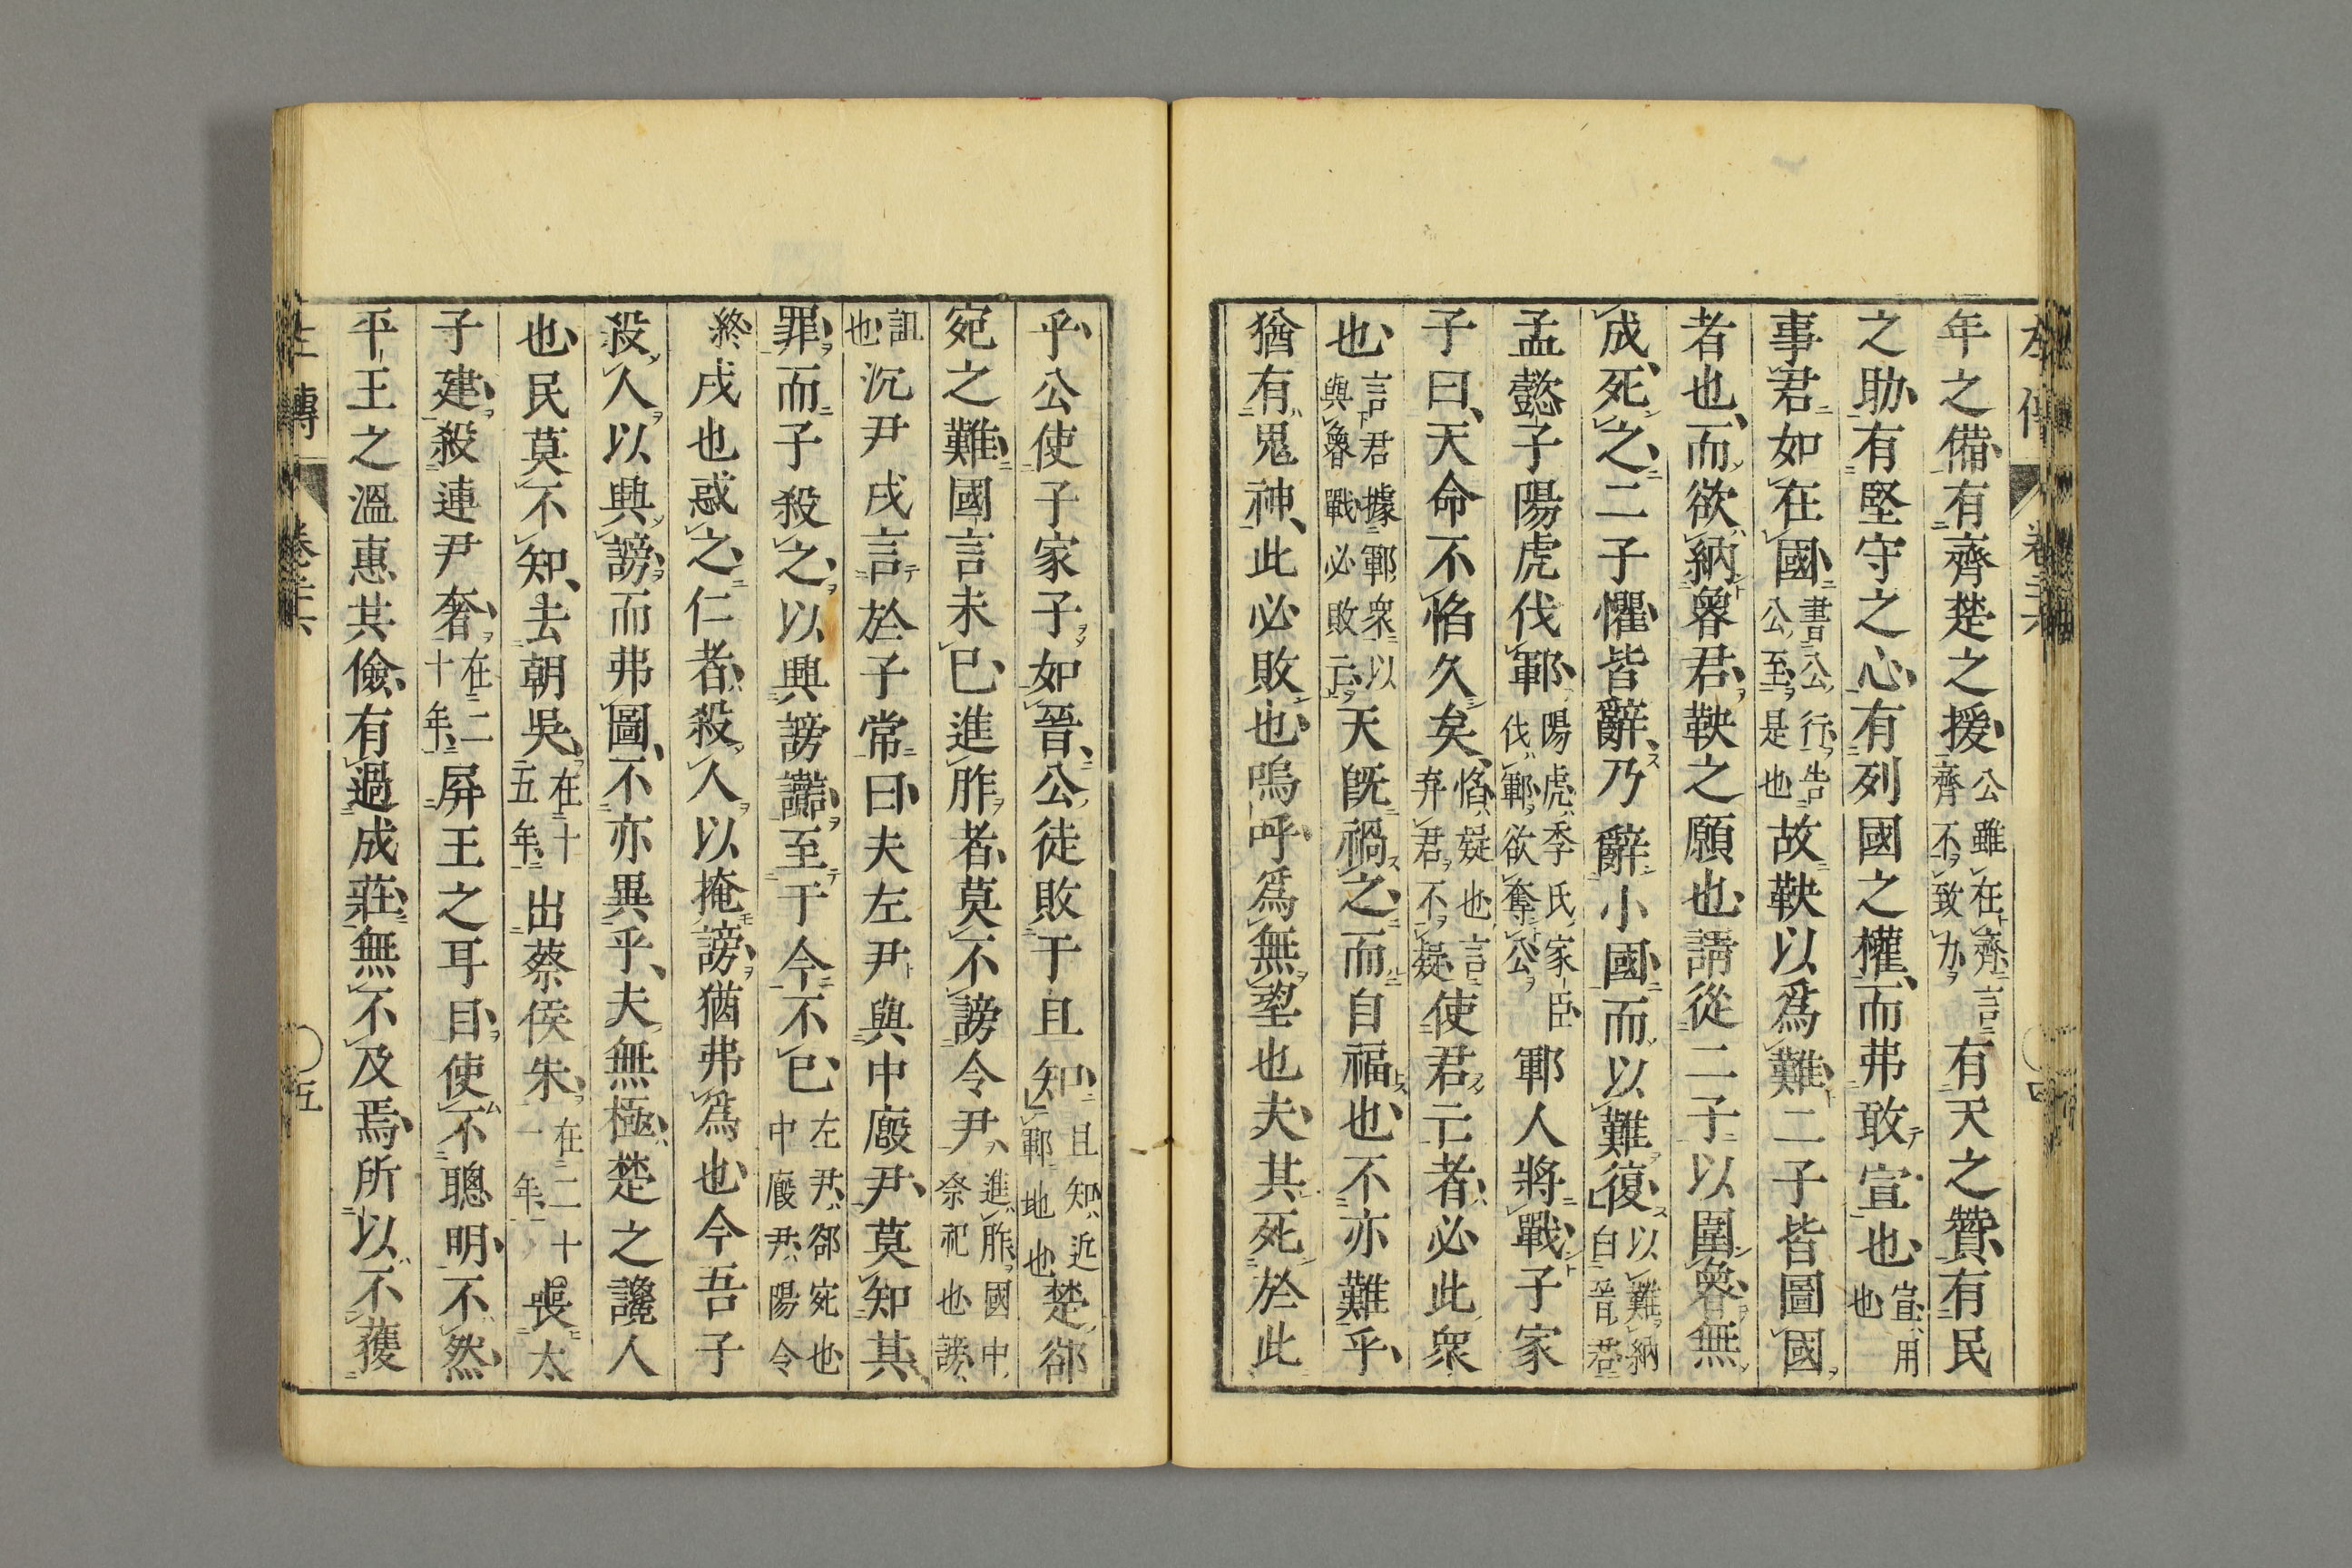 年之備有齊楚之援公雖在齊言齊不致力有天之贊有民
之助有堅守之心有列國之權而弗敢宣也宣用也
事君如在國書公行告公至是也故鞅以爲難二子皆圖國
者也而欲納魯君鞅之願也請從二子以圍魯無
成死之二子懼皆辭乃辭小國而以難復以難納白晉君
孟懿子陽虎伐鄆陽虎季氏家臣伐鄆欲奪公鄆人將戰子家
子曰天命不慆久矣慆疑也言弃君不疑使君亡者必此衆
也言君據鄆衆以與魯戰必敗亡天旣禍之而自福也不亦難乎
猶有鬼神此必敗也嗚呼爲無望也夫其死於此
乎公使子家子如晉公徒敗于且知且知近鄆地也楚郤
宛之難國言未已進胙者莫不謗令尹進胙國中祭祀也謗
詛也沉尹戌言於子常曰夫左尹與中廄尹莫知其
罪而子殺之以興謗讟至于今不已左尹郤宛也中廄尹陽令
終戌也惑之仁者殺人以掩謗猶弗爲也今吾子
殺人以興謗而弗圖不亦異乎夫無極楚之讒人
也民莫不知去朝吳在十五年出蔡侯朱在二十一年喪太
子建殺連尹奢在二十年屛王之耳目使不聰明不然
平王之溫惠共儉有過成莊無不及焉所以不獲
左傳 卷二十六 四
左傳 卷二十六 五